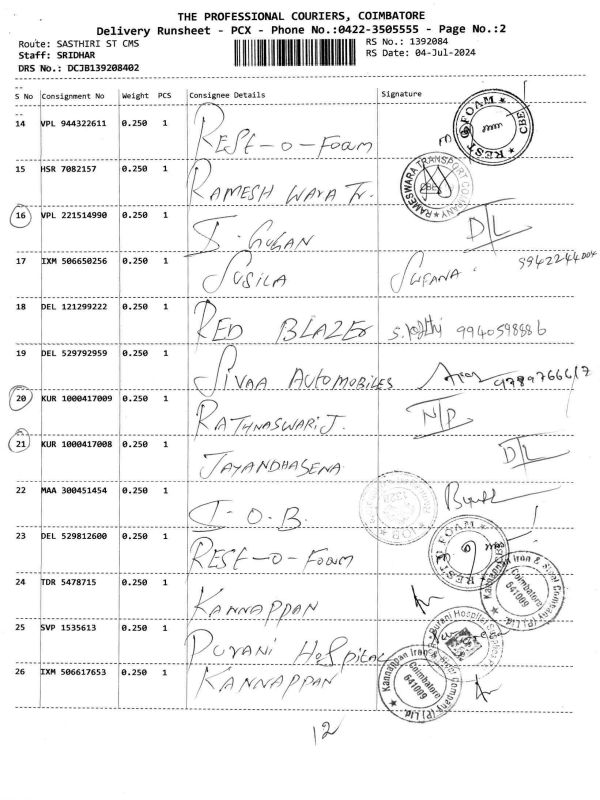 THE PROFESSIONAL COURIERS, COIMBATORE
Delivery Runsheet - PCX - Phone No.:0422-3505555 - Page No.:2
Route: SASTHIRI ST CMS RS No.: 1392084
Staff: SRIDHAR RS Date: 04-Jul-2024
DRS No.: DCJB139208402
S No Consignment No Weight PCS Consignee Details Signature
14 VPL 944322611 0.250 1 REST-O-FOAM REST O FOAM CBE
15 HSR 7082157 0.250 1 RAMESH WARA Tr. RAMESWARA TRANSPORT COMPANY CBE
16 VPL 221514990 0.250 1 D/L
17 IXM 506650256 0.250 1 SUSILA
18 DEL 121299222 0.250 1 RED BLAZER 9940598886
19 DEL 529792959 0.250 1 SIVAA AUTOMOBILES
20 KUR 1000417009 0.250 1 RATHNASWARI J. N/P
21 KUR 1000417008 0.250 1 JAYANDHASENA D/L
22 MAA 300451454 0.250 1 I-O-B.
23 DEL 529812600 0.250 1 REST-O-FOAM REST O FOAM
24 TDR 5478715 0.250 1 KANNAPPAN Kannappan Iron & Steel Company (P) Ltd. Coimbatore 641009
25 SVP 1535613 0.250 1 PURANI HOSPITAL
26 IXM 506617653 0.250 1 KANNAPPAN Kannappan Iron & Steel Company (P) Ltd. Coimbatore 641009
12